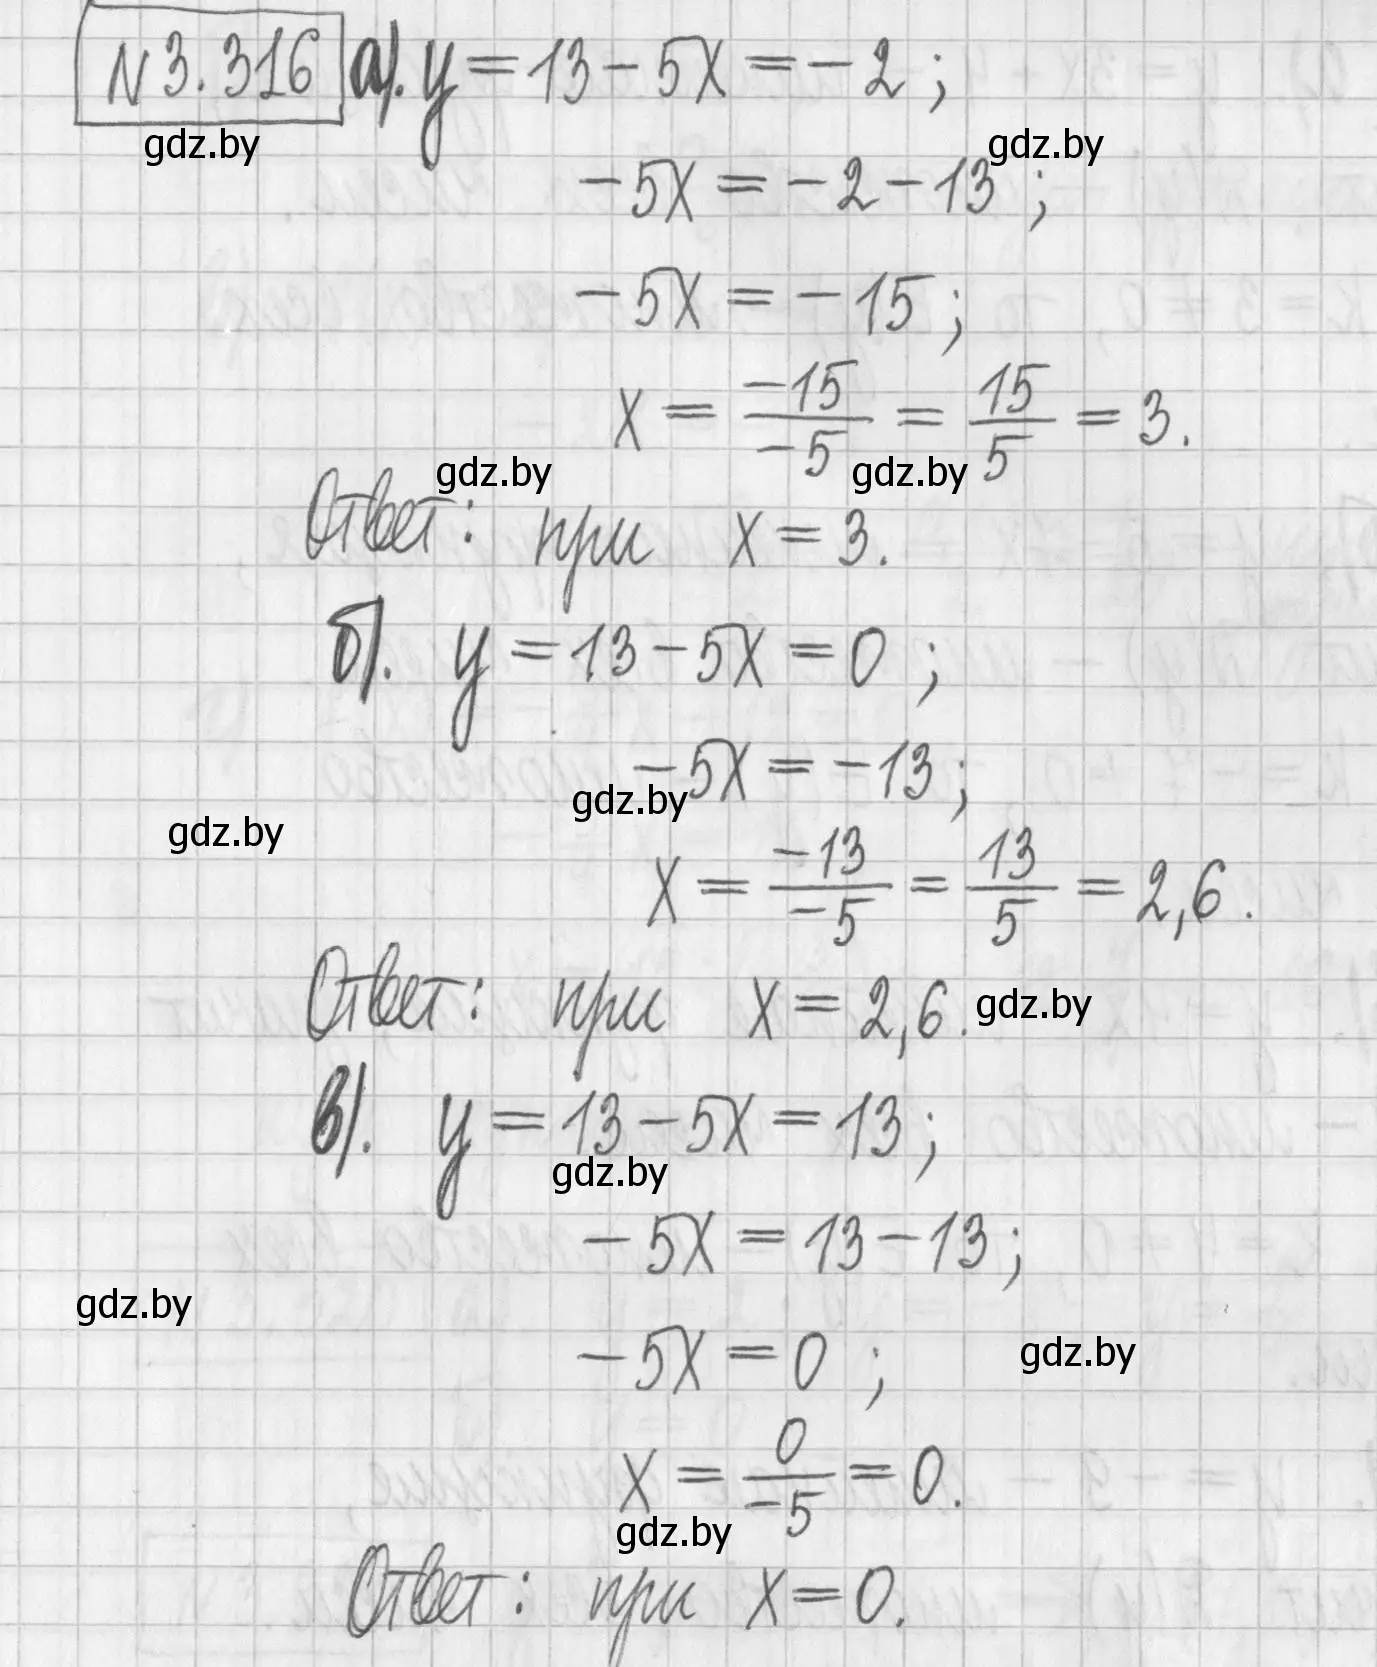 №3.316 а). y = 13 - 5x = -2 ;
gdz.by gdz.by
-5x = -2 - 13 ;
-5x = -15 ;
x = -15/-5 = 15/5 = 3.
gdz.by gdz.by
Ответ: при x = 3.
б). y = 13 - 5x = 0 ;
-5x = -13 ;
gdz.by
gdz.by
x = -13/-5 = 13/5 = 2,6.
Ответ: при x = 2,6. gdz.by
в). y = 13 - 5x = 13 ;
gdz.by
-5x = 13 - 13 ;
gdz.by
-5x = 0 ;
gdz.by
x = 0/-5 = 0.
gdz.by
Ответ: при x = 0.